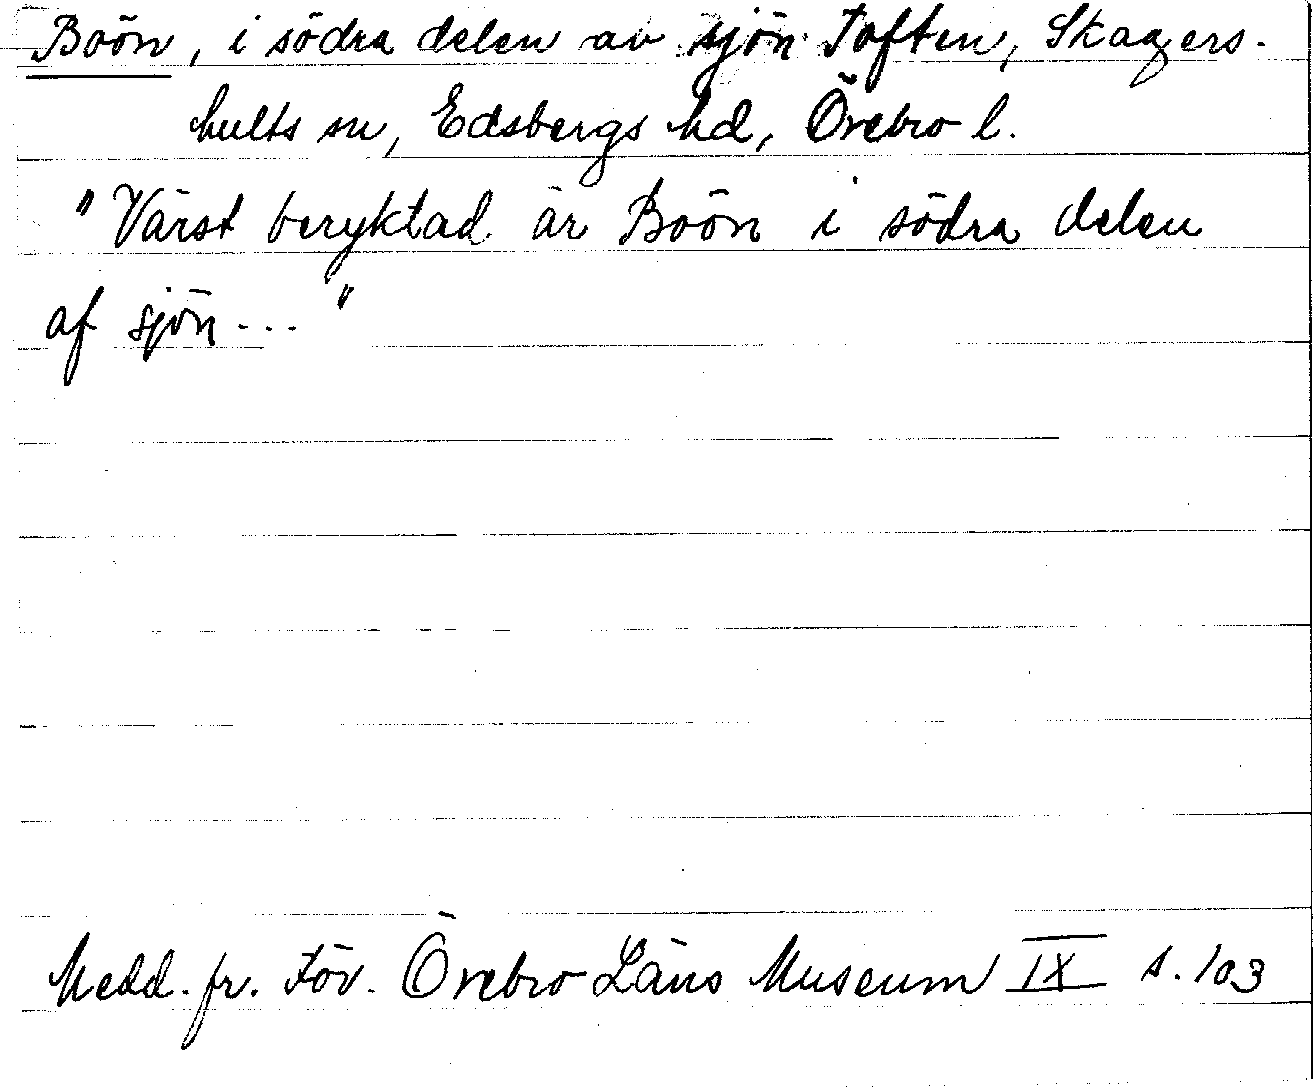 Boön, i södra delen av sjön Toften, Skagers-
hults sn, Edsbergs hd, Örebro l.
"Värst beryktad är Boön i södra delen
af sjön ... "
Medd. fr. För. Örebro Läns Museum IX s. 103